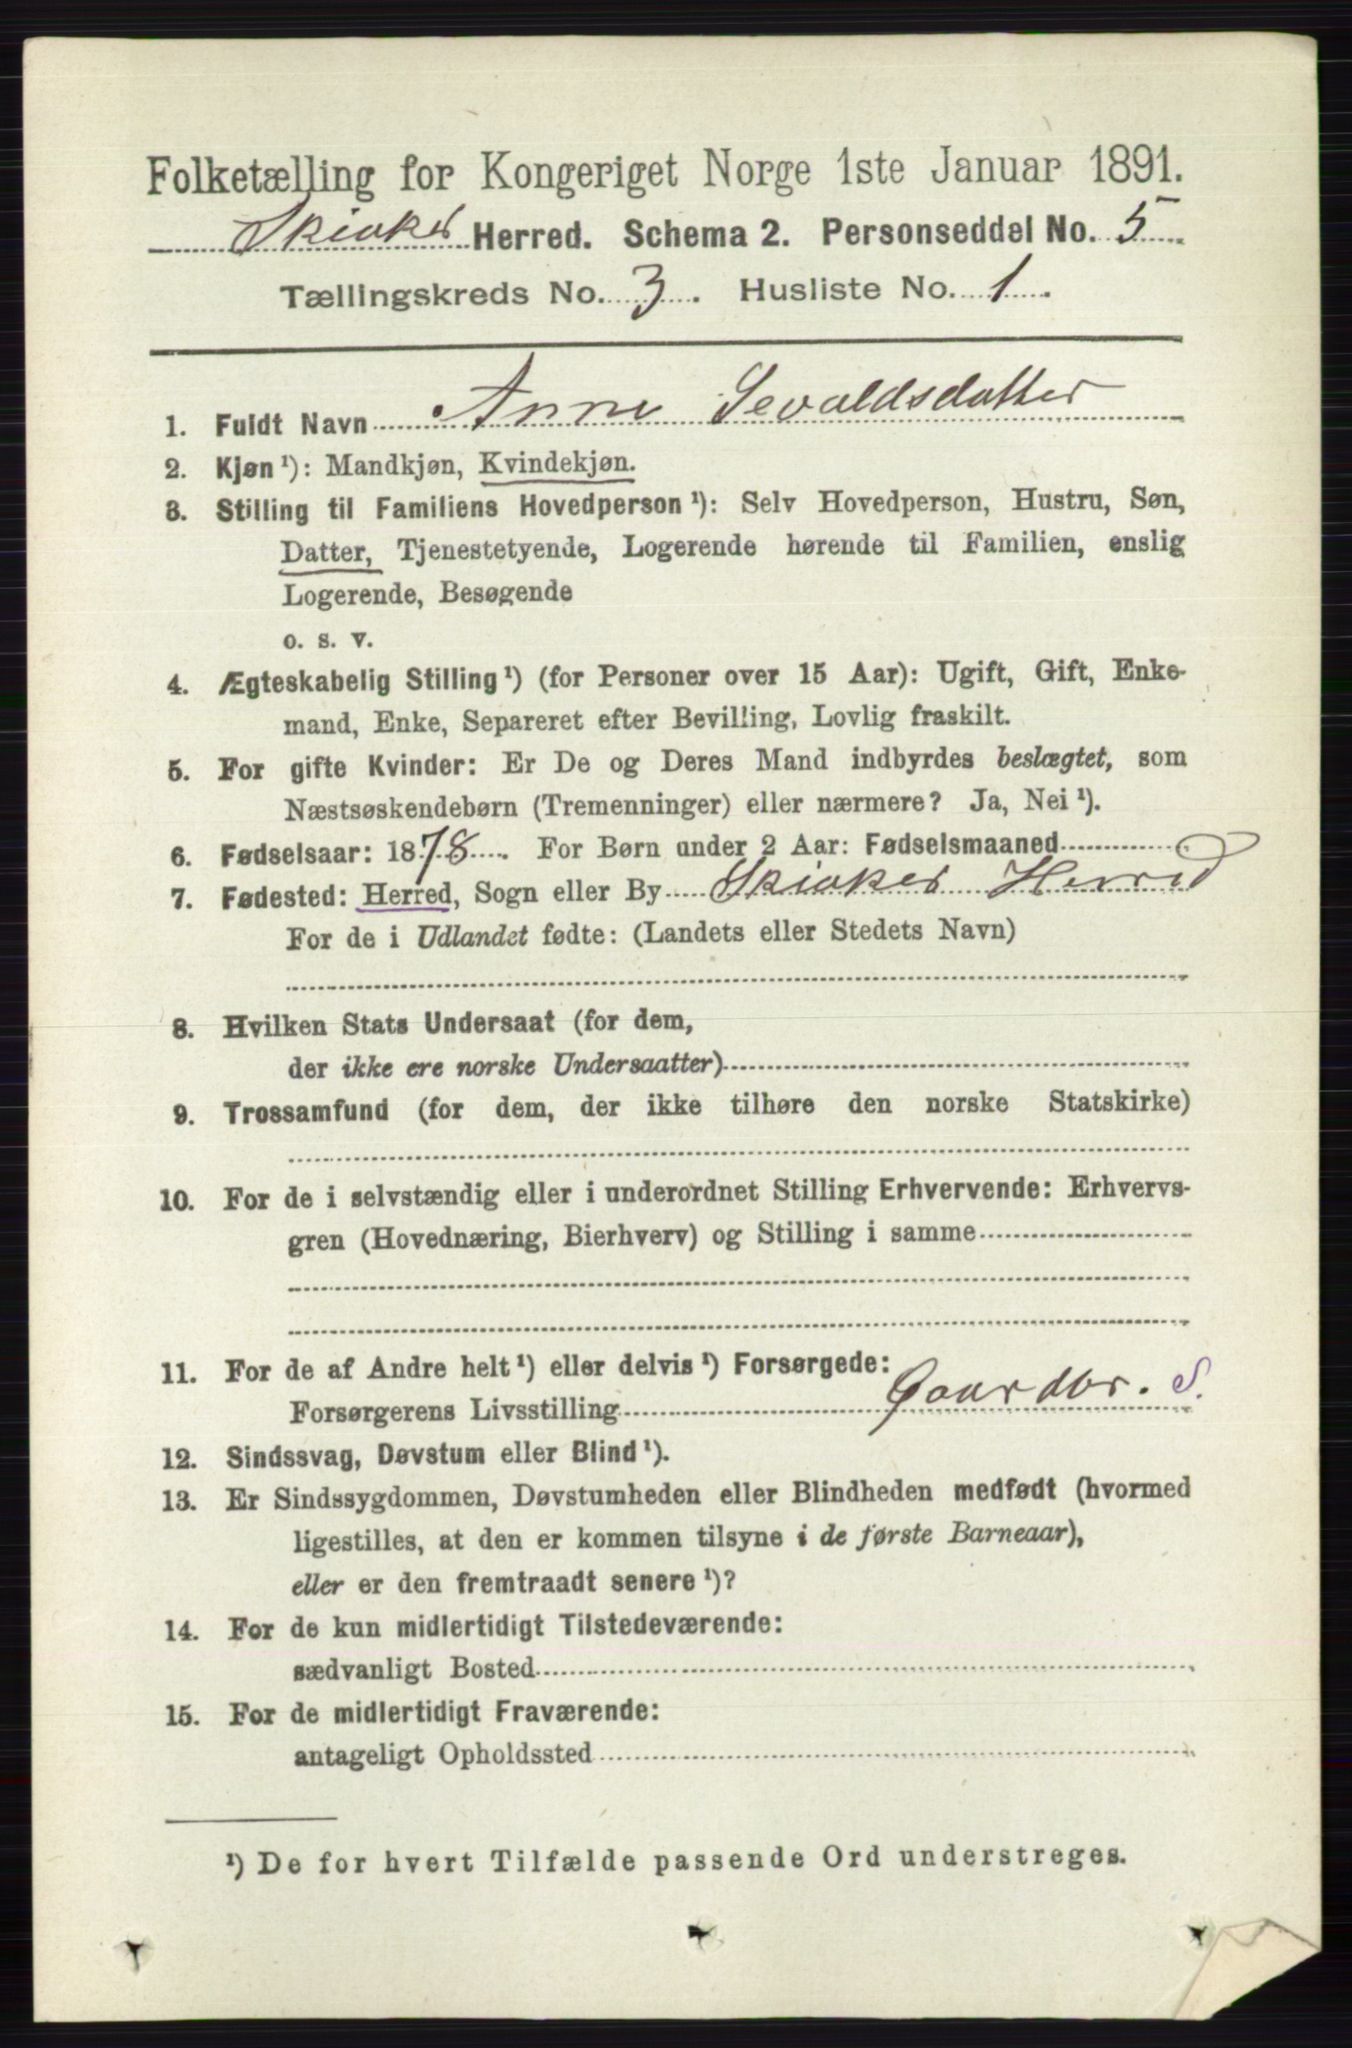 Folketælling for Kongeriget Norge 1ste Januar 1891.
Skiaker Herred. Schema 2. Personseddel No. 5
Tællingskreds No. 3. Husliste No. 1.
1. Fuldt Navn Anne Sevaldsdatter
2. Kjøn ¹): Mandkjøn, Kvindekjøn.
3. Stilling til Familiens Hovedperson ¹): Selv Hovedperson, Hustru, Søn,
Datter, Tjenestetyende, Logerende hørende til Familien, enslig
Logerende, Besøgende
o. s. v.
4. Ægteskabelig Stilling ¹) (for Personer over 15 Aar): Ugift, Gift, Enke-
mand, Enke, Separeret efter Bevilling, Lovlig fraskilt.
5. For gifte Kvinder: Er De og Deres Mand indbyrdes beslægtet, som
Næstsøskendebørn (Tremenninger) eller nærmere? Ja, Nei ¹).
6. Fødselsaar: 1878. For Børn under 2 Aar: Fødselsmaaned
7. Fødested: Herred, Sogn eller By Skiaker Herred
For de i Udlandet fødte: (Landets eller Stedets Navn)
8. Hvilken Stats Undersaat (for dem,
der ikke ere norske Undersaatter)
9. Trossamfund (for dem, der ikke tilhøre den norske Statskirke)
10. For de i selvstændig eller i underordnet Stilling Erhvervende: Erhvervs-
gren (Hovednæring, Bierhverv) og Stilling i samme
11. For de af Andre helt ¹) eller delvis ¹) Forsørgede:
Forsørgerens Livsstilling Gaardbr. S.
12. Sindssvag, Døvstum eller Blind ¹).
13. Er Sindssygdommen, Døvstumheden eller Blindheden medfødt (hvormed
ligestilles, at den er kommen tilsyne i de første Barneaar),
eller er den fremtraadt senere ¹)?
14. For de kun midlertidigt Tilstedeværende:
sædvanligt Bosted
15. For de midlertidigt Fraværende:
antageligt Opholdssted
¹) De for hvert Tilfælde passende Ord understreges.